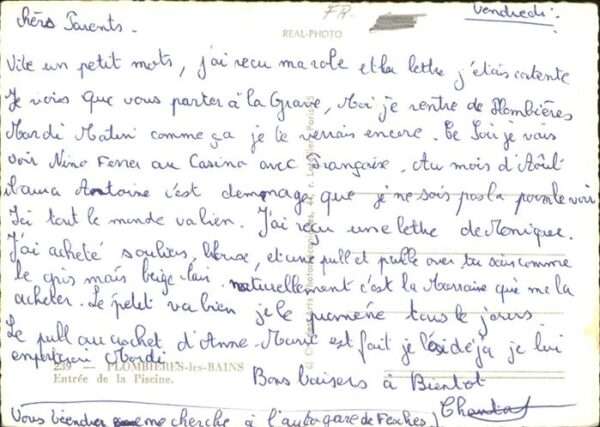 FR.
Vendredi
Chers Parents.
REAL-PHOTO
Vite un petit mots, j'ai recu ma robe et la lettre j'étais contente
Je vois que vous parter à la Grave, Moi je rentre de Plombières
Mardi Matin comme ça je te verrais encore. Ce Soir je vais
voir Nino Ferrer au Casino avec Françoise. Au mois d'Août
il aura Antoine c'est demmage que je ne sois pas la pour le voir
Ici tout le monde va bien. J'ai reçu une lettre de Monique.
J'ai acheté souliers, blouse, et une pull et pulle over tu sais comme
le gris mais beige-clair. naturellement c'est la Marraine que me la
acheter. Le petit va bien je le promène tous le jours
Le pull au crochet d'Anne-Marie est fait je l'ai déjà je lui
emporterai Mardi
239 - PLOMBIERES-les-BAINS
Entrée de la Piscine.
Bons baisers à Bientot
Chantal
Vous viendrer me cherche à l'autogare de Fesches